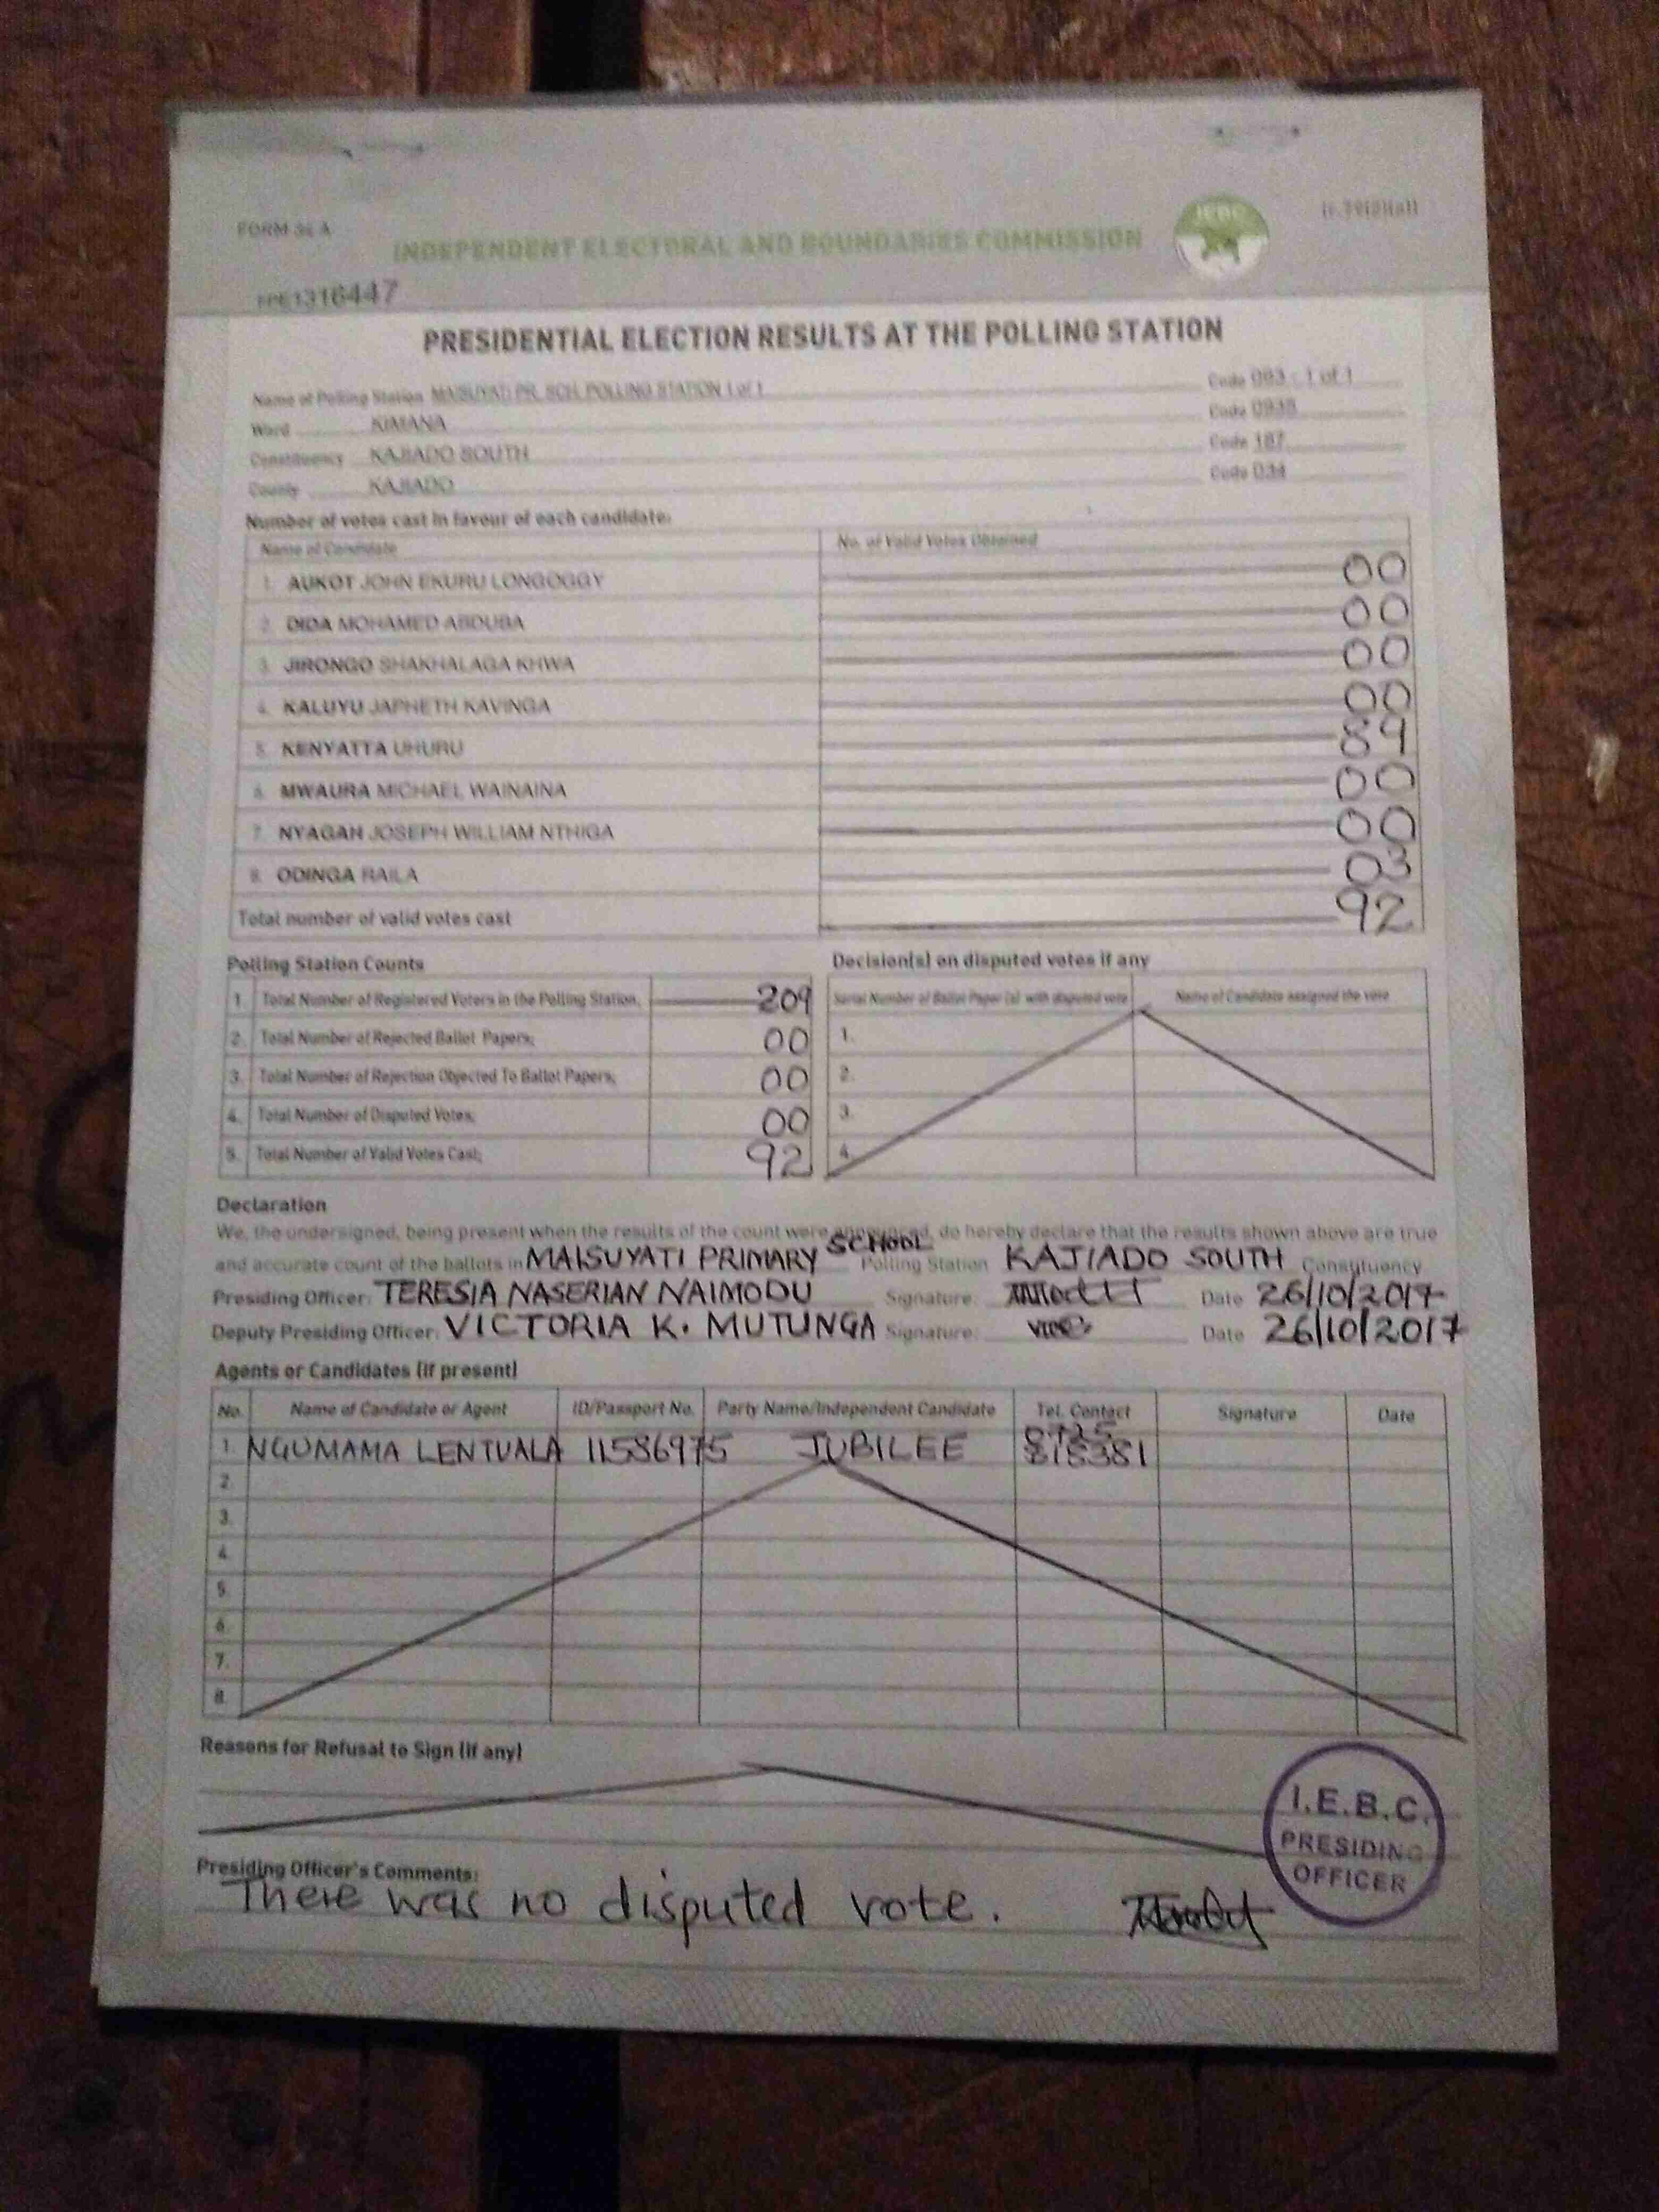 FORM 34 A
INDEPENDENT ELECTORAL AND BOUNDARIES COMMISSION
IEBC
1316447
PRESIDENTIAL ELECTION RESULTS AT THE POLLING STATION
Name of Polling Station MAISUYATI PR. SCH. POLLING STATION 1 of 1 Code 093 - 1 of 1
Ward KIMANA Code 0935
Constituency KAJIADO SOUTH Code 187
County KAJIADO Code 034
Number of votes cast in favour of each candidate:
Name of Candidate No. of Valid Votes Obtained
1. AUKOT JOHN EKURU LONGOGGY 00
2. DIDA MOHAMED ABDUBA 00
3. JIRONGO SHAKHALAGA KHWA 00
4. KALUYU JAPHETH KAVINGA 00
5. KENYATTA UHURU 89
6. MWAURA MICHAEL WAINAINA 00
7. NYAGAH JOSEPH WILLIAM NTHIGA 00
8. ODINGA RAILA 03
Total number of valid votes cast 92
Polling Station Counts
1. Total Number of Registered Voters in the Polling Station; 209
2. Total Number of Rejected Ballot Papers; 00
3. Total Number of Rejection Objected To Ballot Papers; 00
4. Total Number of Disputed Votes; 00
5. Total Number of Valid Votes Cast; 92
Decision(s) on disputed votes if any
Serial Number of Ballot Paper (s) with disputed vote Name of Candidate assigned the vote
1.
2.
3.
4.
Declaration
We, the undersigned, being present when the results of the count were announced, do hereby declare that the results shown above are true
and accurate count of the ballots in MAISUYATI PRIMARY SCHOOL Polling Station KAJIADO SOUTH Constituency
Presiding Officer: TERESIA NASERIAN NAIMODU Signature: Date 26/10/2017
Deputy Presiding Officer: VICTORIA K. MUTUNGA Signature: Date 26/10/2017
Agents or Candidates (if present)
No. Name of Candidate or Agent ID/Passport No. Party Name/Independent Candidate Tel. Contact Signature Date
1. NGUMAMA LENTUALA 11586975 JUBILEE 0725 815381
2.
3.
4.
5.
6.
7.
8.
Reasons for Refusal to Sign (if any)
I.E.B.C.
PRESIDING
OFFICER
Presiding Officer's Comments:
There was no disputed vote.